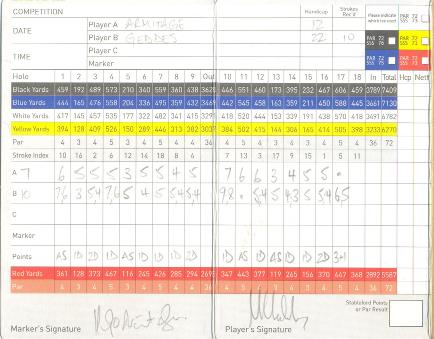 COMPETITION
Handicap Strokes Rec'd
DATE
Player A ARMITAGE 12
Player B GEDDES 22 10
TIME
Player C
Marker
Please indicate which tee used
PAR 72 SSS 76
PAR 72 SSS 75
PAR 72
PAR 72
Hole 1 2 3 4 5 6 7 8 9 Out 10 11 12 13 14 15 16 17 18 In Total Hcp Nett
Black Yards 459 192 489 573 210 340 559 360 438 3620 446 551 460 173 395 232 467 606 459 3789 7409
Blue Yards 444 165 476 558 204 336 495 359 432 3469 442 545 458 163 359 211 450 588 445 3661 7130
White Yards 417 145 457 535 177 322 482 341 415 418 520 444 154 339 191 438 670 517 3491 6782
Yellow Yards 394 128 409 526 150 289 446 313 382 3037 384 502 415 144 306 165 414 505 398 3233 6270
Par 4 3 4 5 3 4 5 4 4 36 4 5 4 3 4 3 4 5 4 36 72
Stroke Index 10 16 2 6 12 14 18 8 4 7 13 3 17 9 15 1 5 11
A 7 6 5 5 5 3 5 5 4 5 7 6 6 3 4 5 5
B 10
C
Marker
Points AS 1D 2D 1D AS 1D 2D 1D 2D 1D AS 1D AS 1D 1D 1D 2D 3+1
Red Yards 361 128 373 467 116 245 426 285 294 2695 347 443 377 119 265 156 370 447 368 2892 5587
Par 4 3 4 5 3 4 5 4 4 36 4 5 4 3 4 3 4 5 4 36 72
Stableford Points or Par Result
Marker's Signature
Player's Signature